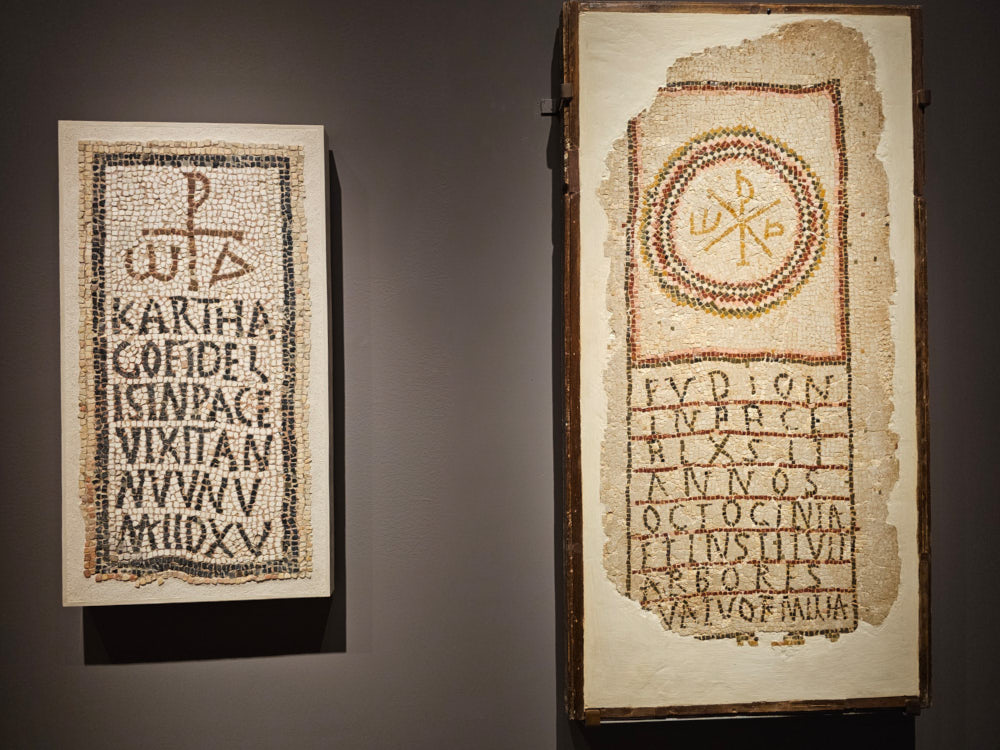 ω Α
KARTHA
GOFIDEL
ISINPACE
VIXITAN
NVUNU
MIIDXV
ω Α
FVDION
INPACE
BIXSIT
ANNOS
OCTOGINTA
ETINSTITVIT
ARBORES
QVATVORMILIA